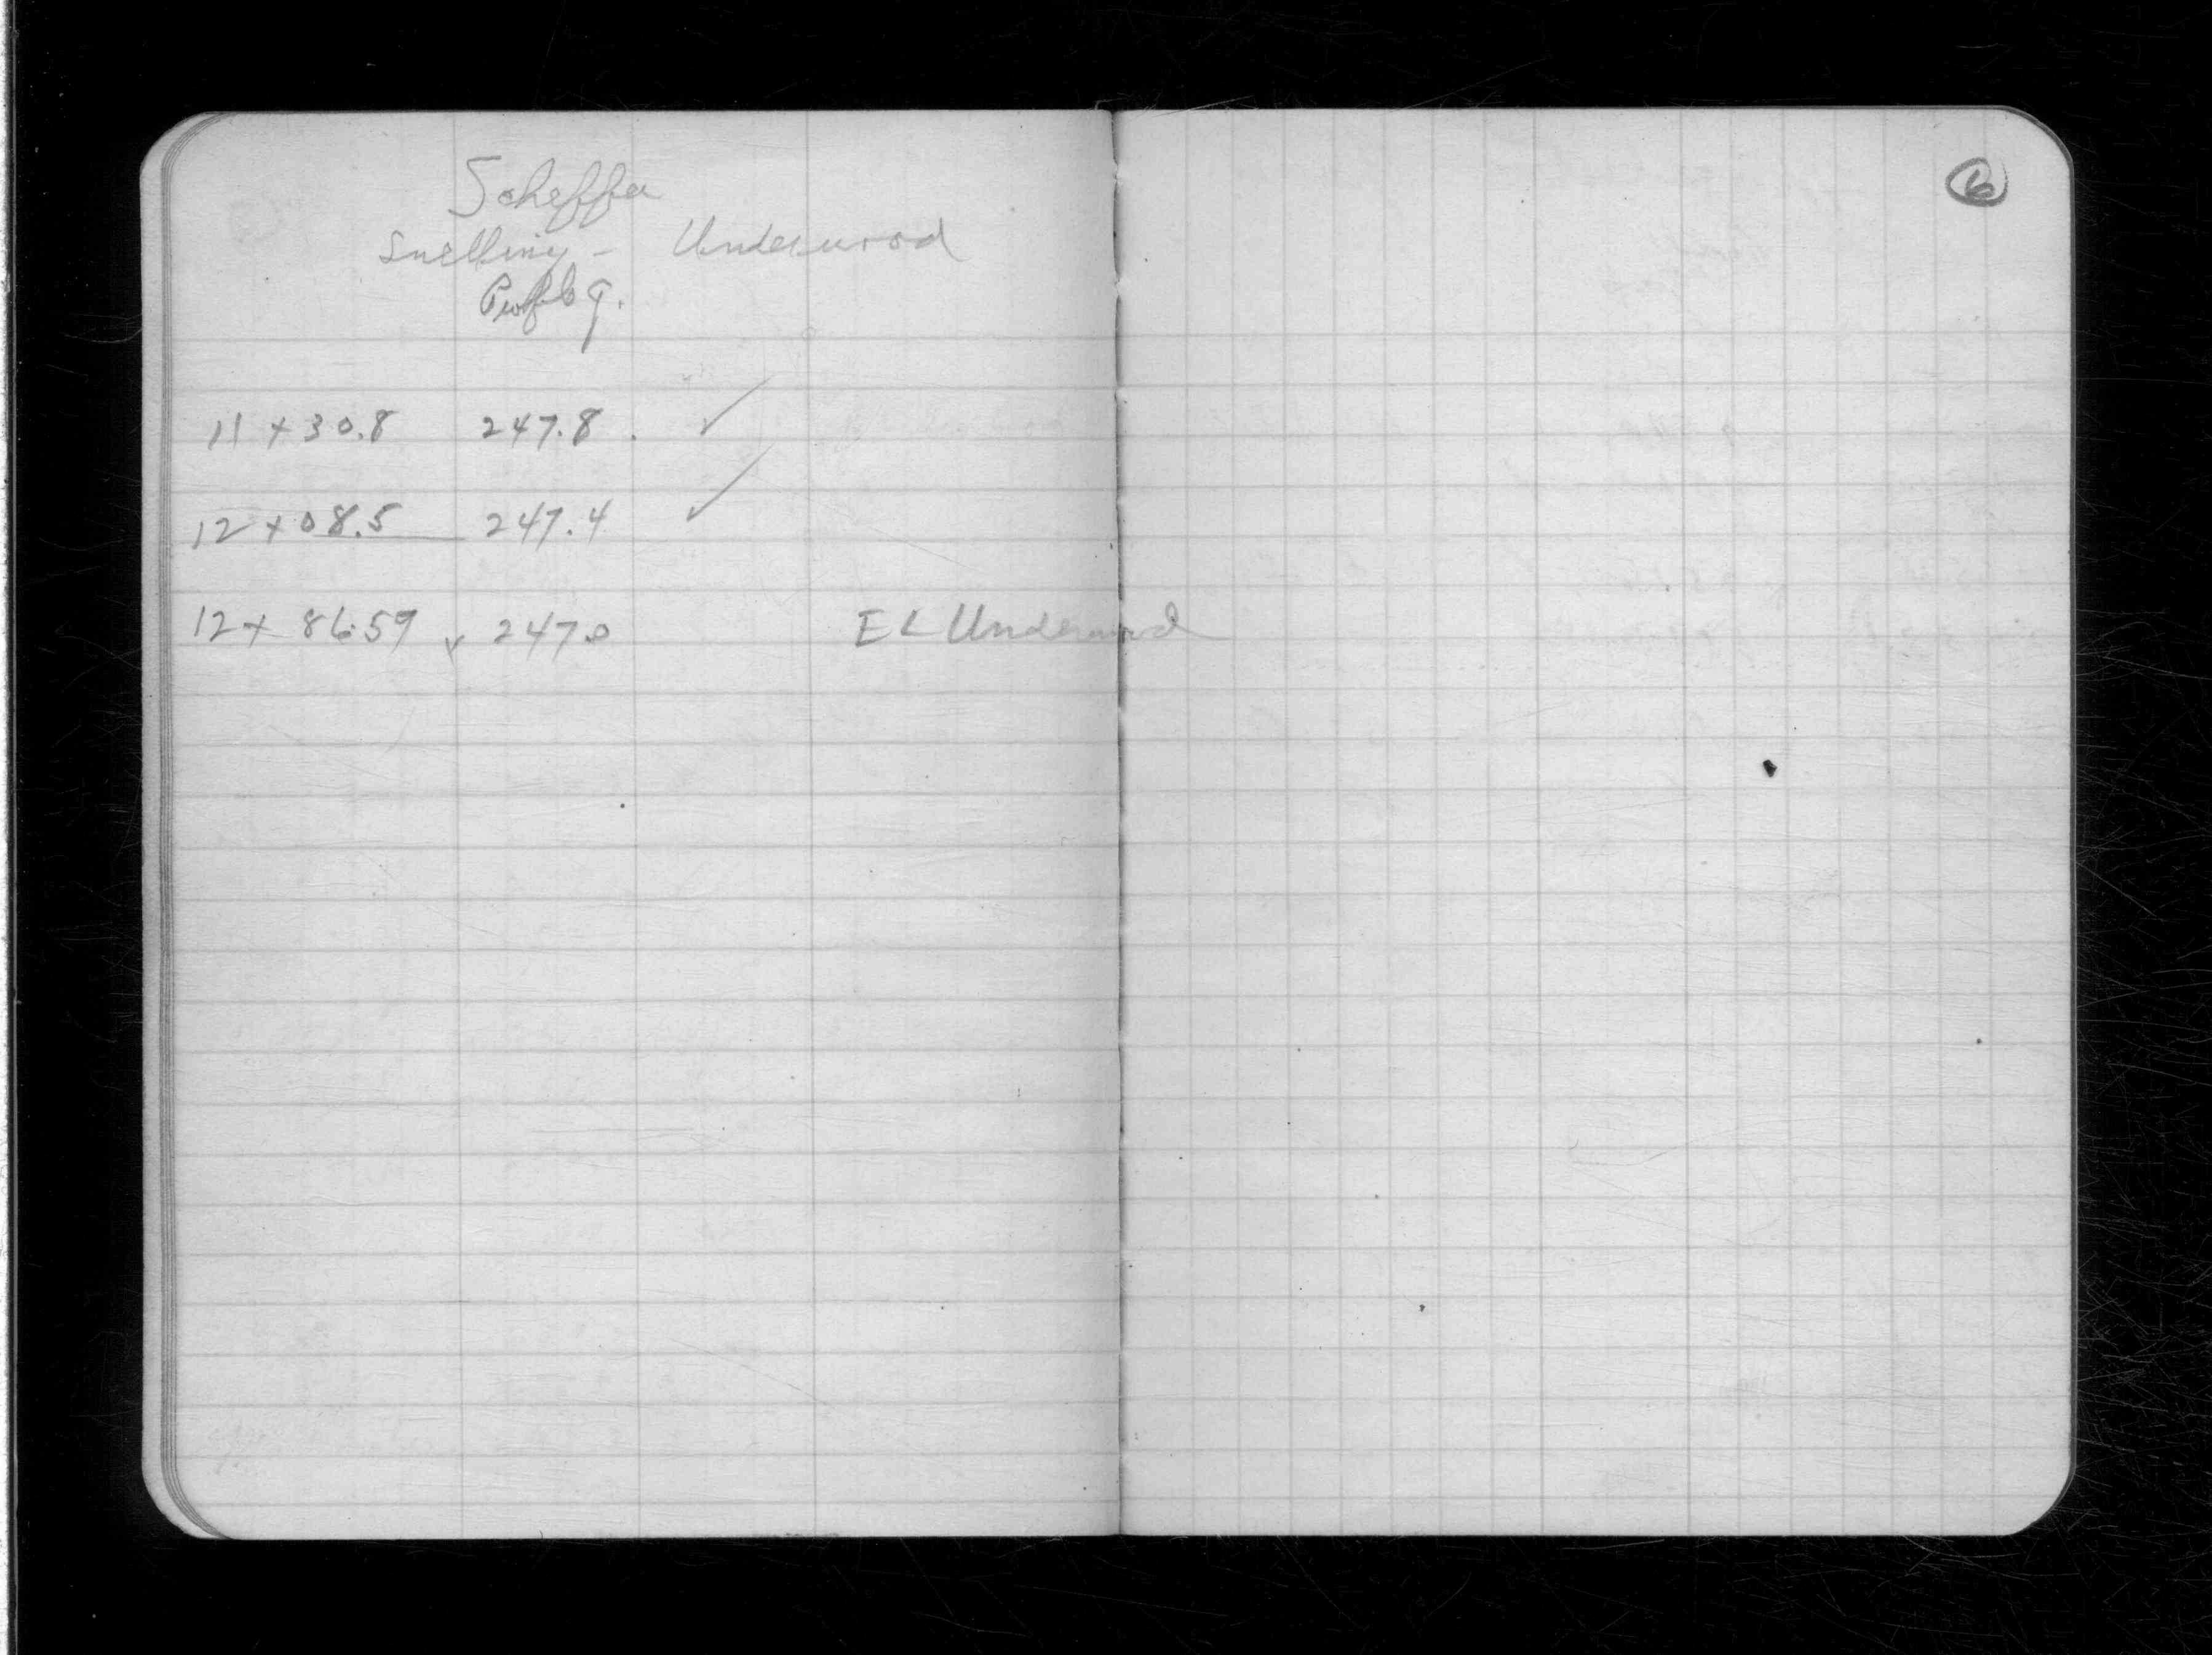 Scheffer
Snelling - Underwood
Profile G.
11 + 30.8 247.8 ✓
12 + 08.5 247.4 ✓
12 + 86.59 247.0 E L Underwood
6